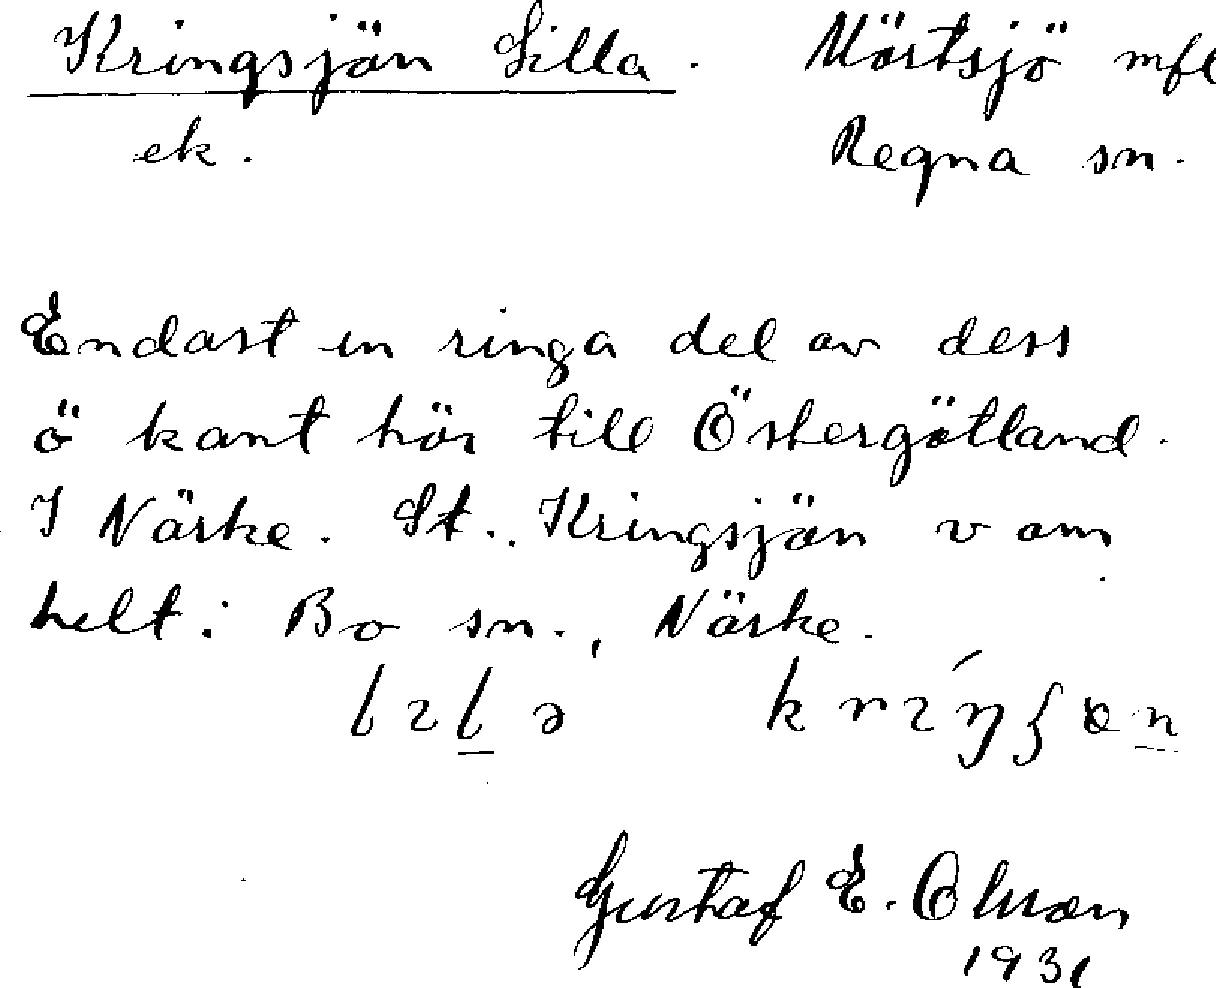 Kringsjön Lilla. Mörtsjö mfl
ek. Regna sn.
Endast en ringa del av dess
ö kant hör till Östergötland.
I Närke. St. Kringsjön v om
helt i Bo sn., Närke.
Gustaf E. Olsson
1931